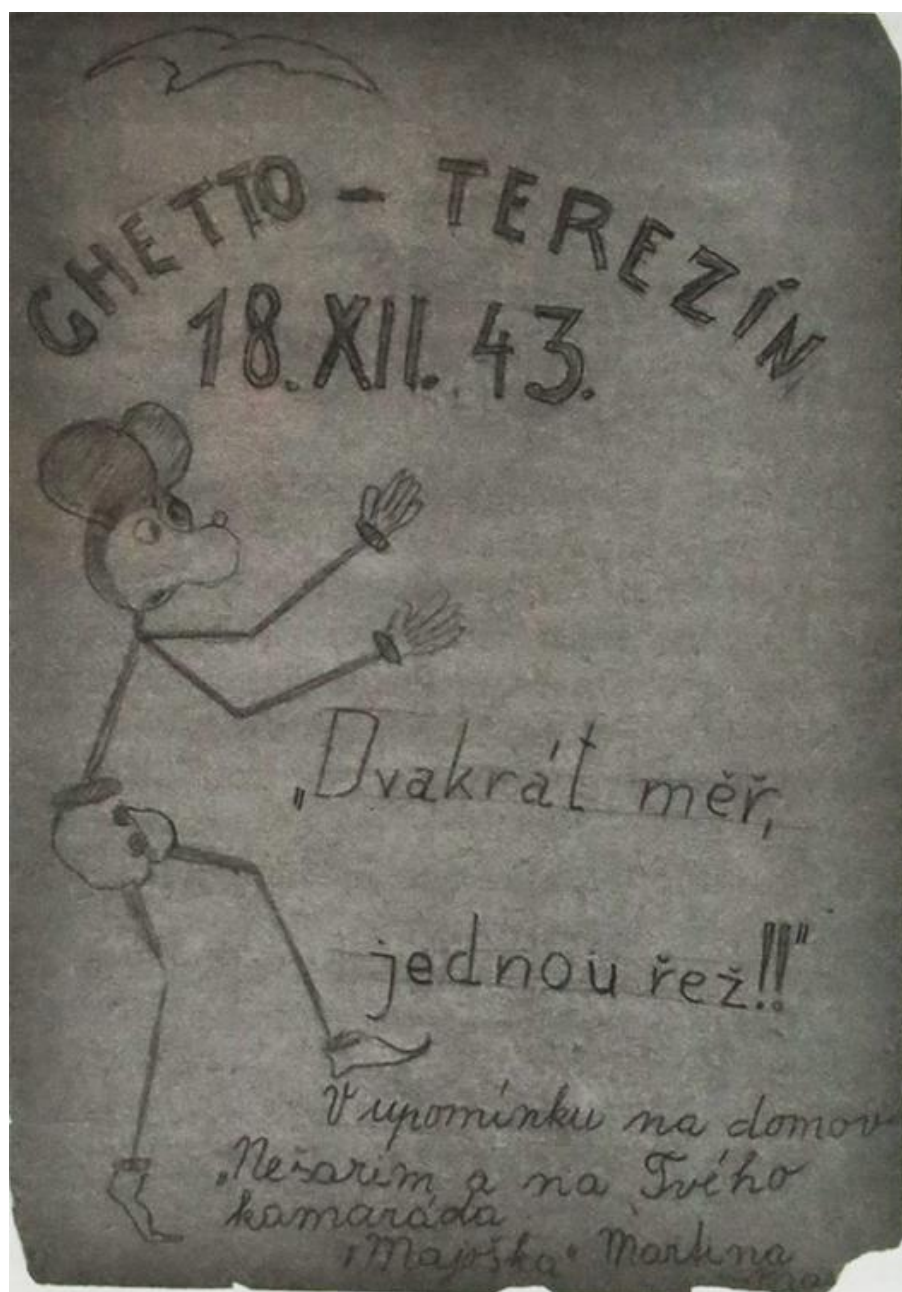 GHETTO - TEREZÍN
18. XII. 43.
„Dvakrát měř,
jednou řež!!"
V upomínku na domov
„Nešarim a na Tvého
kamaráda
„Majoška" Martina